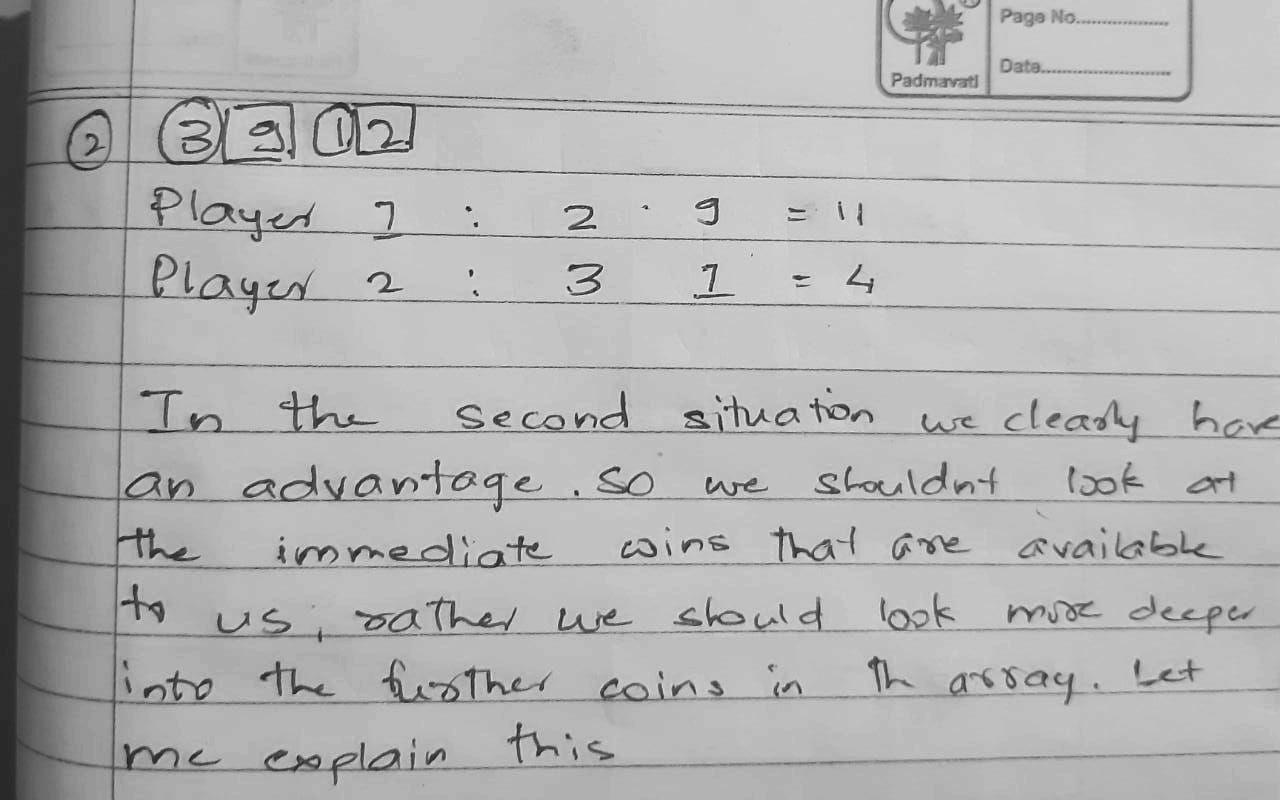 Page No.....................
Padmavati
Date............................
2 3 9 1 2
Player 1 : 2 . 9 = 11
Player 2 : 3 1 = 4
In the second situation we clearly have
an advantage. So we shouldnt look at
the immediate coins that are available
to us, rather we should look more deeper
into the further coins in th array. Let
me explain this